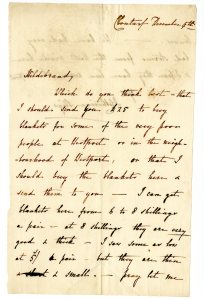 Clontarf December 5th
Hildebrand
Which do you think best - that
I should send you £25 to buy
blankets for some of the very poor
people at Westport, or in the neigh-
bourhood of Westport, or that I
should buy the blankets here &
send them to you — I can get
blankets here from 6 to 8 shillings
a pair - at 8 shillings they are very
good & thick - I saw some as low
at 5/ a pair - but they are thin
& small. - Pray let me